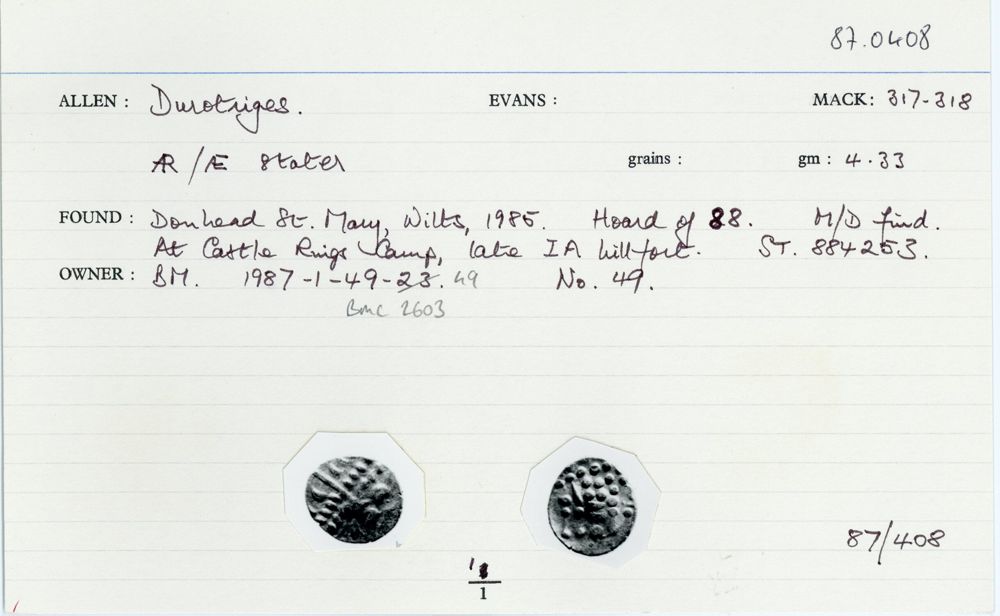 87.0408
ALLEN : Durotriges. EVANS : MACK: 317-318
AR/Æ Stater grains : gm : 4.33
FOUND : Donhead St. Mary, Wilts, 1985. Hoard of 88. M/D find.
At Castle Rings Camp, late IA hillfort. ST. 884253.
OWNER : BM. 1987-1-49-23. 49 No. 49.
BMC 2603
87/408
1
1